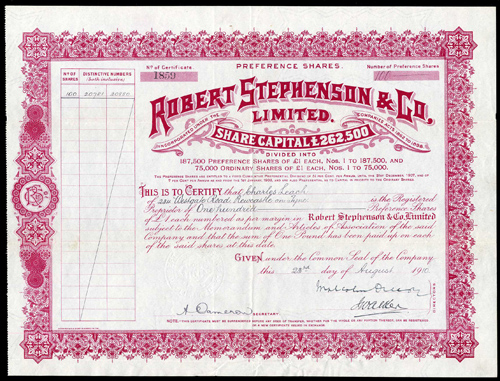 PREFERENCE SHARES.
No of Certificate.
1859
Number of Preference Shares
100
No OF SHARES
DISTINCTIVE NUMBERS
(both inclusive)
100
ROBERT STEPHENSON & CO.
LIMITED.
INCORPORATED UNDER THE
COMPANIES ACTS 1862 TO 1898.
SHARE CAPITAL £262,500
DIVIDED INTO
187,500 PREFERENCE SHARES OF £1 EACH, NOS. 1 TO 187,500, AND
75,000 ORDINARY SHARES OF £1 EACH, NOS. 1 TO 75,000.
THIS IS TO CERTIFY that Charles Leach
of Westgate Road, Newcastle on Tyne is the Registered
Proprietor of One hundred Preference Shares
of £1 each numbered as per margin in Robert Stephenson & Co. Limited
subject to the Memorandum and Articles of Association of the said
Company and that the sum of One Pound has been paid up on each
of the said shares at this date.
GIVEN under the Common Seal of the Company
this 23rd day of August 1910
Malcolm
DIRECTORS
A. Cameron
SECRETARY.
NOTE:- THIS CERTIFICATE MUST BE SURRENDERED BEFORE ANY DEED OF TRANSFER, WHETHER FOR THE WHOLE OR ANY PORTION THEREOF, CAN BE REGISTERED
OR A NEW CERTIFICATE ISSUED IN EXCHANGE.